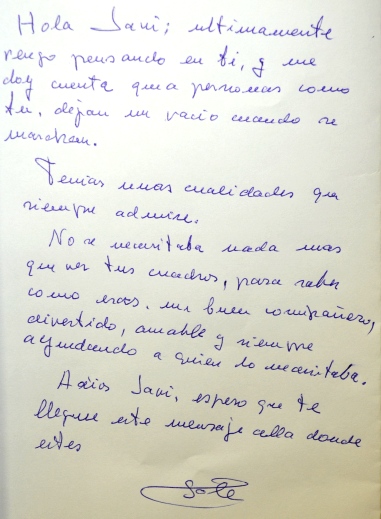 Hola Javi; ultimamente
vengo pensando en ti, y me
doy cuenta que a personas como
tu, dejan un vacio cuando se
marchan.
Tenias unas cualidades que
siempre admire.
No se necesitaba nada mas
que ver tus cuadros, para saber
como eras. un buen compañero,
divertido, amable y siempre
ayudando a quien lo necesitaba.
Adios Javi, espero que te
llegue este mensaje alla donde
estes
Sole